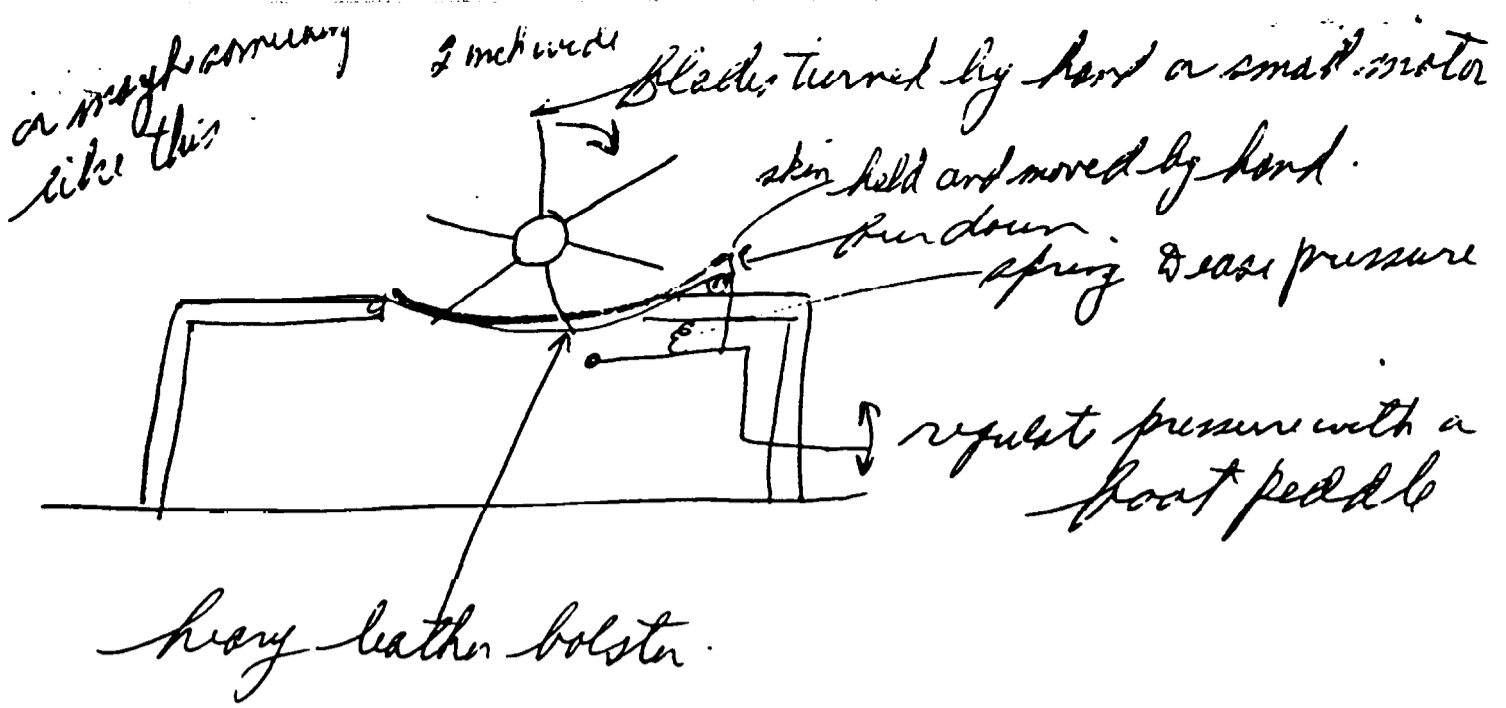 or maybe something
like this
2 inch wide
Blades turned by hand or small motor
skin held and moved by hand.
fur down
spring to ease pressure
regulate pressure with a
foot peddle
heavy leather bolster.